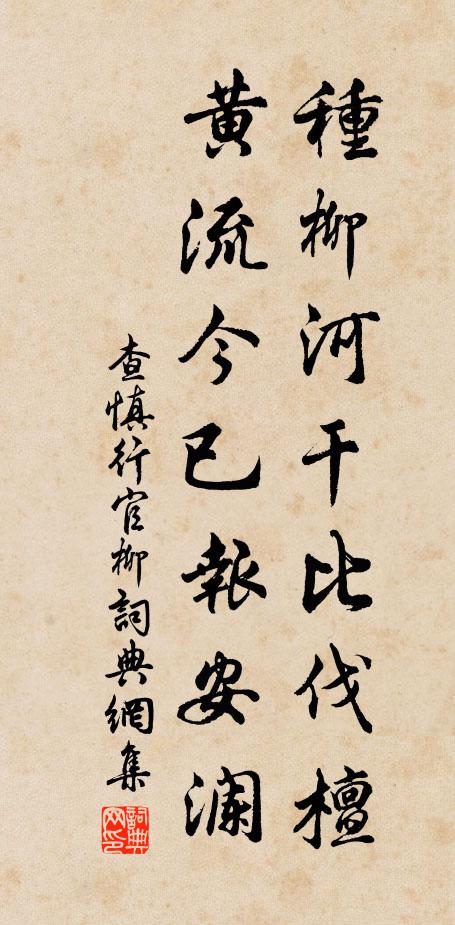 種柳河干比伐檀
黃流今已報安瀾
查慎行官柳詞典網集
詞典网印